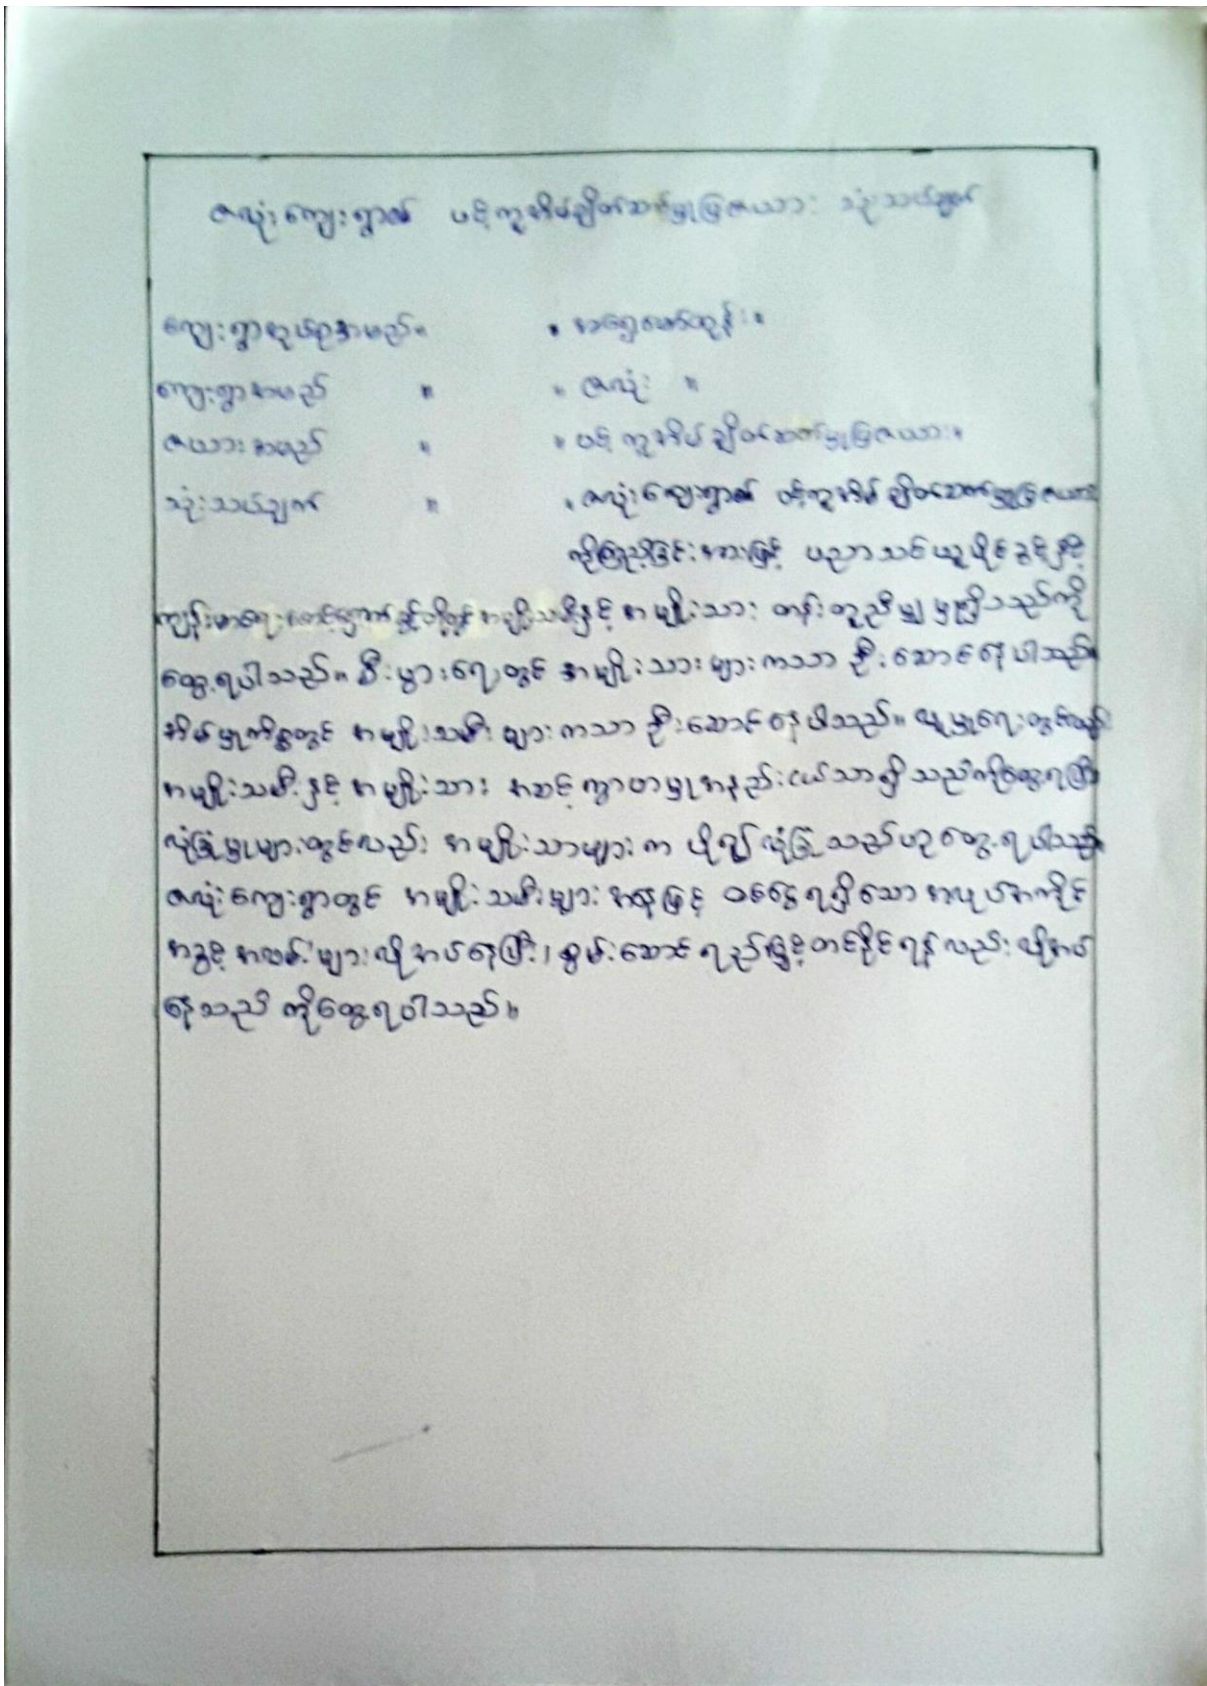 ဇလုံးကျေးရွာ၏ ပင့်ကူအိမ်ချိတ်ဆက်မှုပြဇယား သုံးသပ်ချက်
ကျေးရွာအုပ်စုအမည်။ ။ အရှေ့ဖော်ထုန်း။
ကျေးရွာအမည် ။ ။ ဇလုံး ။
ဇယားအမည် ။ ။ ပင့်ကူအိမ်ချိတ်ဆက်မှုပြဇယား။
သုံးသပ်ချက် ။ ။ ဇလုံးကျေးရွာ၏ ပင့်ကူအိမ်ချိတ်ဆက်မှုပြဇယား
ကိုကြည့်ခြင်းအားဖြင့် ပညာသင်ယူပိုင်ခွင့်နှင့်
ကျန်းမာရေးစောင့်ရှောက်ခွင့်တို့တွင် အမျိုးသမီးနှင့် အမျိုးသား တန်းတူညီမျှမှုရှိသည်ကို
တွေ့ရပါသည်။ စီးပွားရေးတွင် အမျိုးသားများကသာ ဦးဆောင်နေပါသည်။
အိမ်မှုကိစ္စတွင် အမျိုးသမီးများကသာ ဦးဆောင်နေပါသည်။ လူမှုရေးတွင်လည်း
အမျိုးသမီးနှင့် အမျိုးသား အဆင့်ကွာဟမှုအနည်းငယ်သာရှိသည်ကိုတွေ့ရပြီး
လုံခြုံမှုများတွင်လည်း အမျိုးသားများက ပို၍လုံခြုံသည်ဟုတွေ့ရပါသည်။
ဇလုံးကျေးရွာတွင် အမျိုးသမီးများအနေဖြင့် ဝင်ငွေရရှိသော အလုပ်အကိုင်
အခွင့်အလမ်းများလိုအပ်နေပြီး၊ စွမ်းဆောင်ရည်မြှင့်တင်နိုင်ရန်လည်း လိုအပ်
နေသည်ကိုတွေ့ရပါသည်။